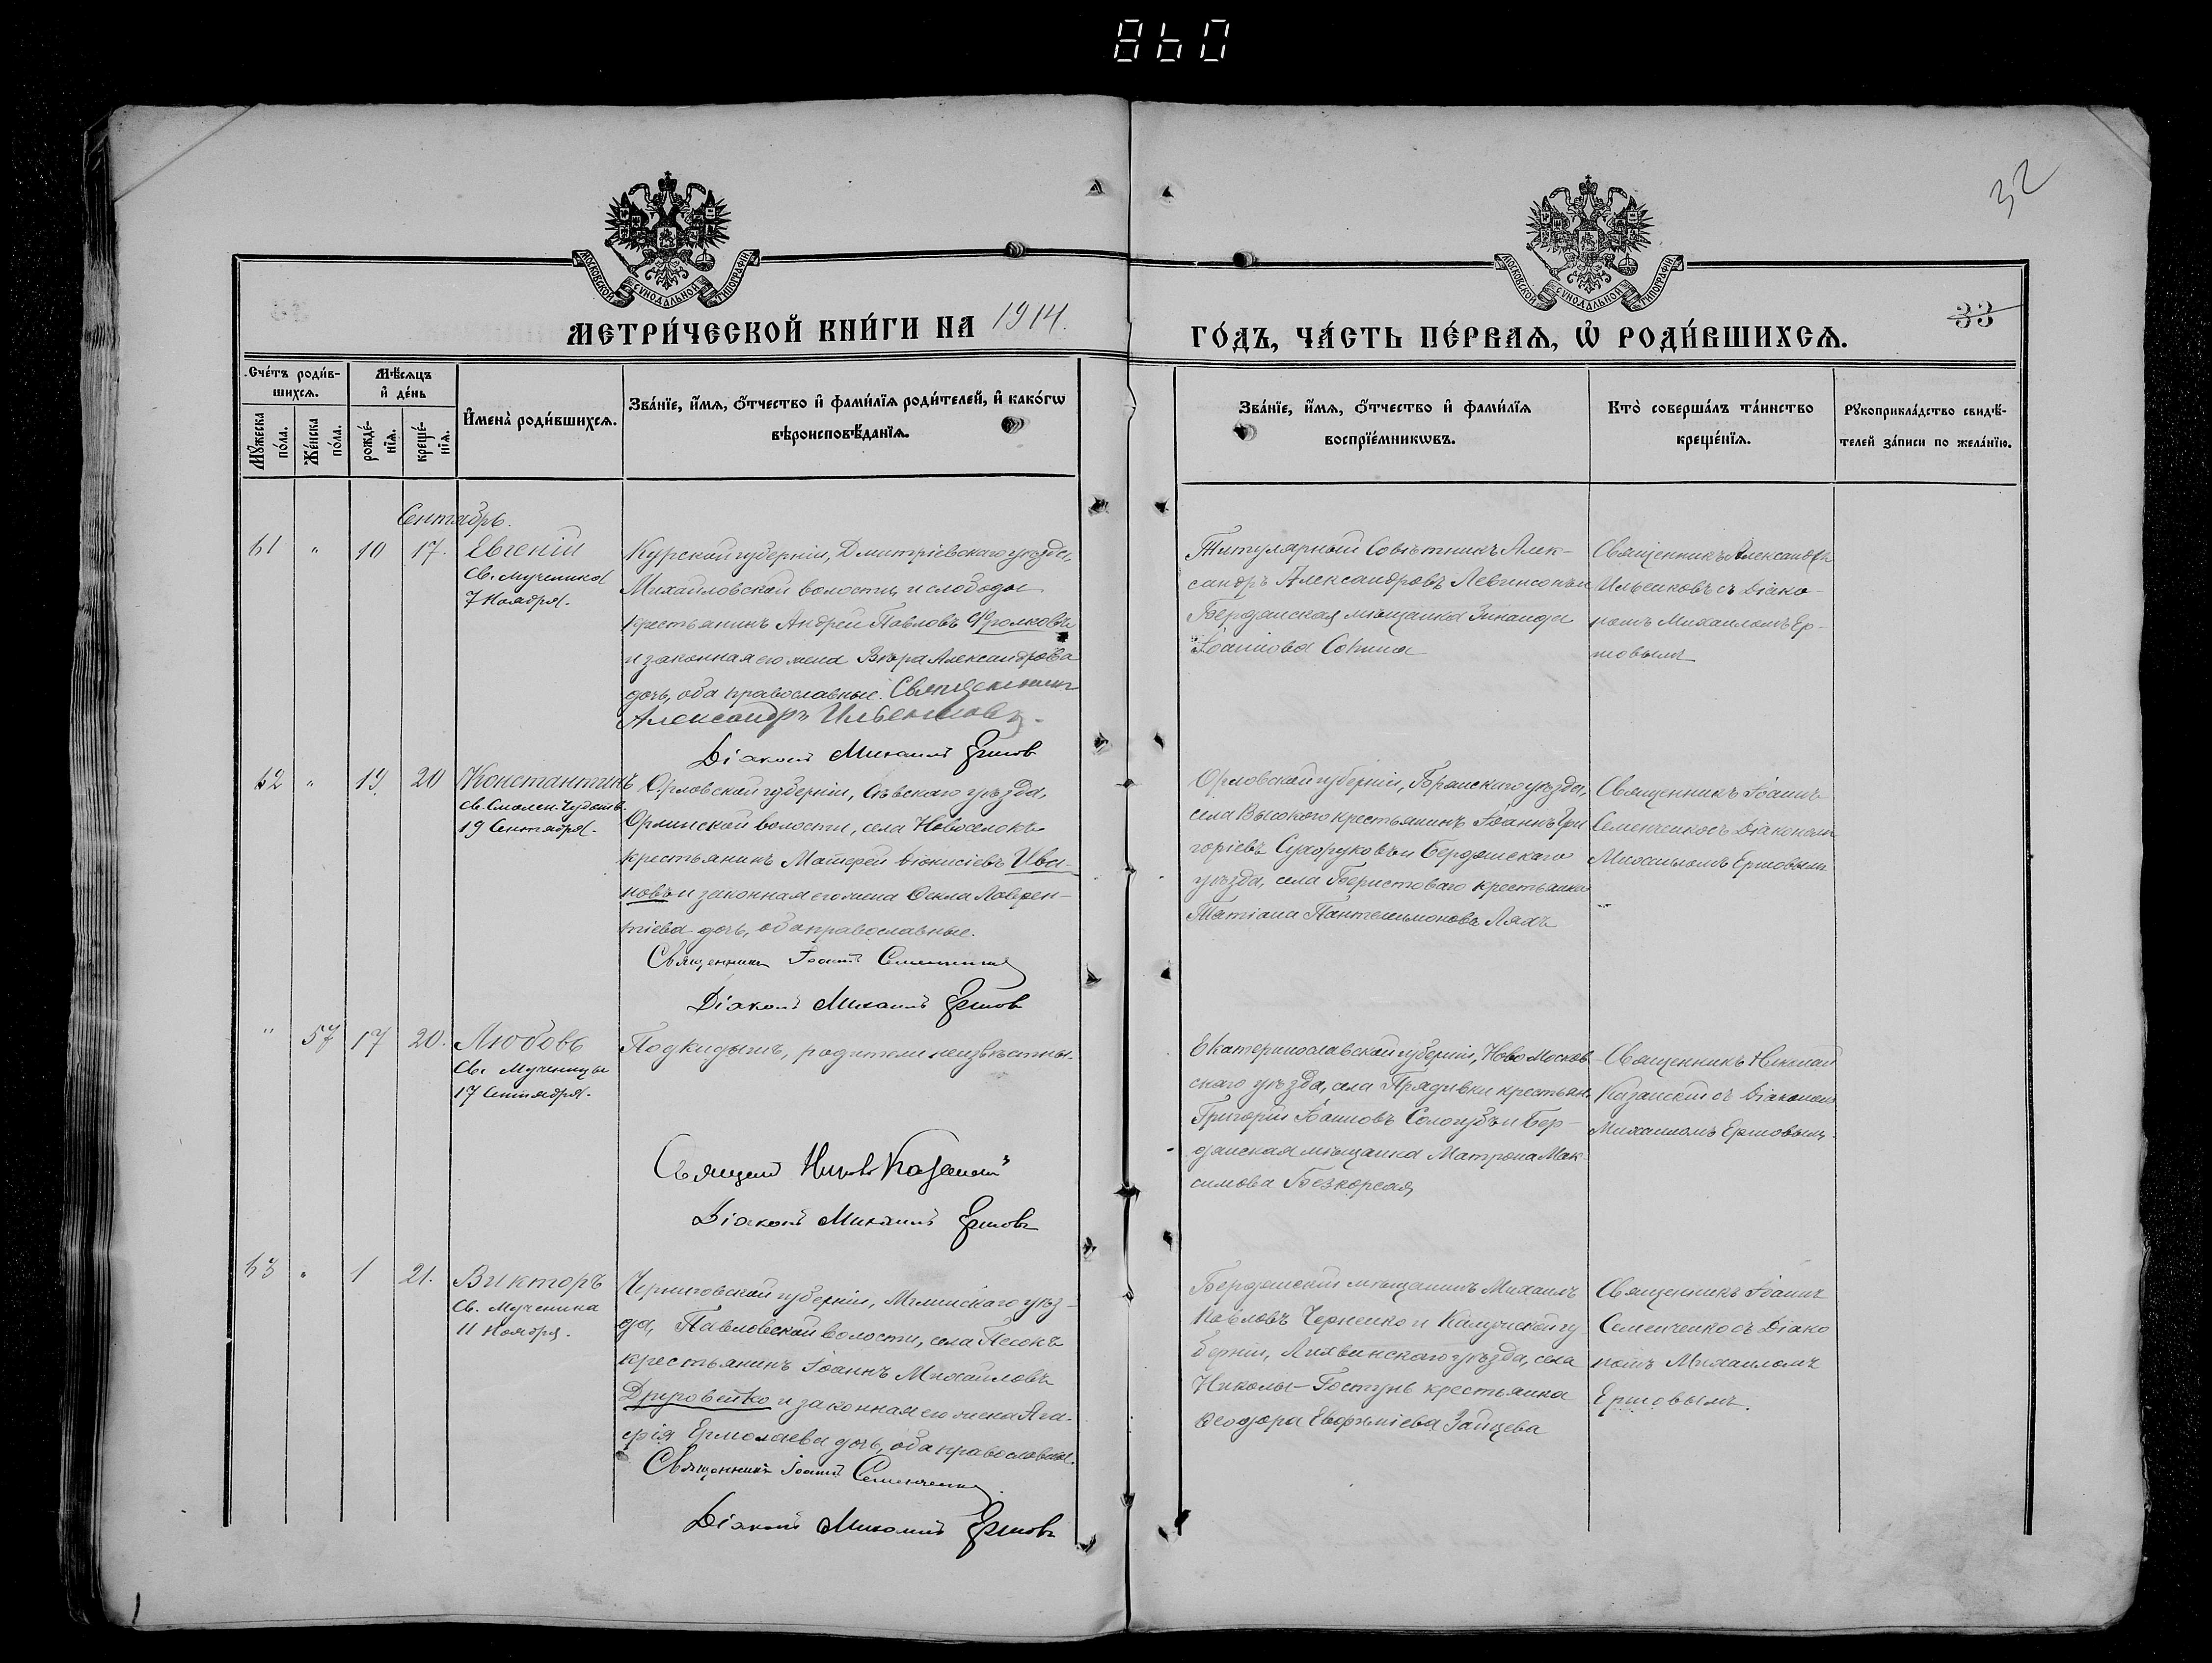 860
32
МОСКОВСКОЙ СѴНОДАЛЬНОЙ ТИПОГРАФІИ
МОСКОВСКОЙ СѴНОДАЛЬНОЙ ТИПОГРАФІИ
33
МЕТРИ́ЧЕСКОЙ КНИ́ГИ НА 1914.
ГО́ДЪ, ЧА́СТЬ ПЕ́РВАѦ, Ѡ҆ РОДИ́ВШИХСѦ.
Сче́тъ роди́в-
шихсѧ.
Мѣ́сѧцъ
и҆ де́нь
Мꙋ́жеска
по́ла.
Же́нска
по́ла.
рожде́-
нїѧ.
креще́-
нїѧ.
И҆мена̀ роди́вшихсѧ.
Зва́нїе, и҆́мѧ, о҆́тчество и҆ фами́лїѧ роди́телей, и҆ како́гѡ
вѣроисповѣ́данїѧ.
Зва́нїе, и҆́мѧ, о҆́тчество и҆ фами́лїѧ
воспрїе́мникѡвъ.
Кто̀ соверша́лъ та́инство
креще́нїѧ.
Рꙋкоприкла́дство свидѣ́-
телей за́писи по жела́нїю.
Сентябрь.
61 " 10 17. Евгеній
Св. мученика
7 Ноября.
Курской губерніи, Дмитріевскаго уѣзда,
Михайловской волости, и слободы
крестьянинъ Андрей Павловъ Фролковъ
и законная его жена Вѣра Александрова
дочь, оба православные. Священникъ
Александръ Ильенковъ.
Діаконъ Михаилъ Ершов
Титулярный Совѣтникъ Алек-
сандръ Александровъ Левинсонъ и
Бердянская мѣщанка Зинаида
Іоаннова Сонина
Священникъ Александръ
Ильенковъ съ Діако-
номъ Михаиломъ Ер-
шовымъ
62 " 19 20 Константинъ
Св. Смолен. Чудотв.
19 Сентября.
Орловской губерніи, Сѣвскаго уѣзда,
волости, села Новоселокъ
крестьянинъ Матѳей Діонисіевъ Ива-
новъ и законная его жена Ѳекла Лаврен-
тіева дочь, оба православные.
Священникъ Іоаннъ Семенченко
Діаконъ Михаилъ Ершов
Орловской губерніи, Брянскаго уѣзда,
села Высокого крестьянинъ Іоаннъ Гри
горіевъ Сухоруковъ и Бердянскаго
уѣзда, села Берестоваго крестьянка
Татіана Пантелеимонова Ляхъ
Священникъ Іоаннъ
Семенченко съ Діакономъ
Михаиломъ Ершовымъ
" 57 17 20. Любовь
Св. Мученицы
17 Сентября.
Подкидышъ, родители неизвѣстны.
Священ Никол Казанскій
Діаконъ Михаилъ Ершовъ
Екатеринославской губерніи, Ново Москов-
скаго уѣзда, села Прядивки крестьян.
Григорій Іоанновъ Сологубъ и Бер-
дянская мѣщанка Матрона Мак-
симова Безкорсая
Священникъ Николай
Казанскій съ Діакономъ
Михаиломъ Ершовымъ.
63 " 1 21. Викторъ
Св. Мученика
11 Ноября.
Черниговской губерніи, Мглинскаго уѣз-
да, Павловской волости, села Песокъ
крестьянинъ Іоаннъ Михайловъ
Друговейко и законная его жена Ага-
ѳія Ермолаева дочь, оба православные.
Священникъ Іоаннъ Семенченко
Діаконъ Михаилъ Ершовъ
Бердянскій мѣщанинъ Михаилъ
Павловъ Черненко и Калужской гу
берніи, Лихвинскаго уѣзда, села
Николы-Гостунь крестьянка
Ѳеодора Евфиміева Зайцева
Священникъ Іоаннъ
Семенченко съ Діако
номъ Михаиломъ
Ершовымъ.